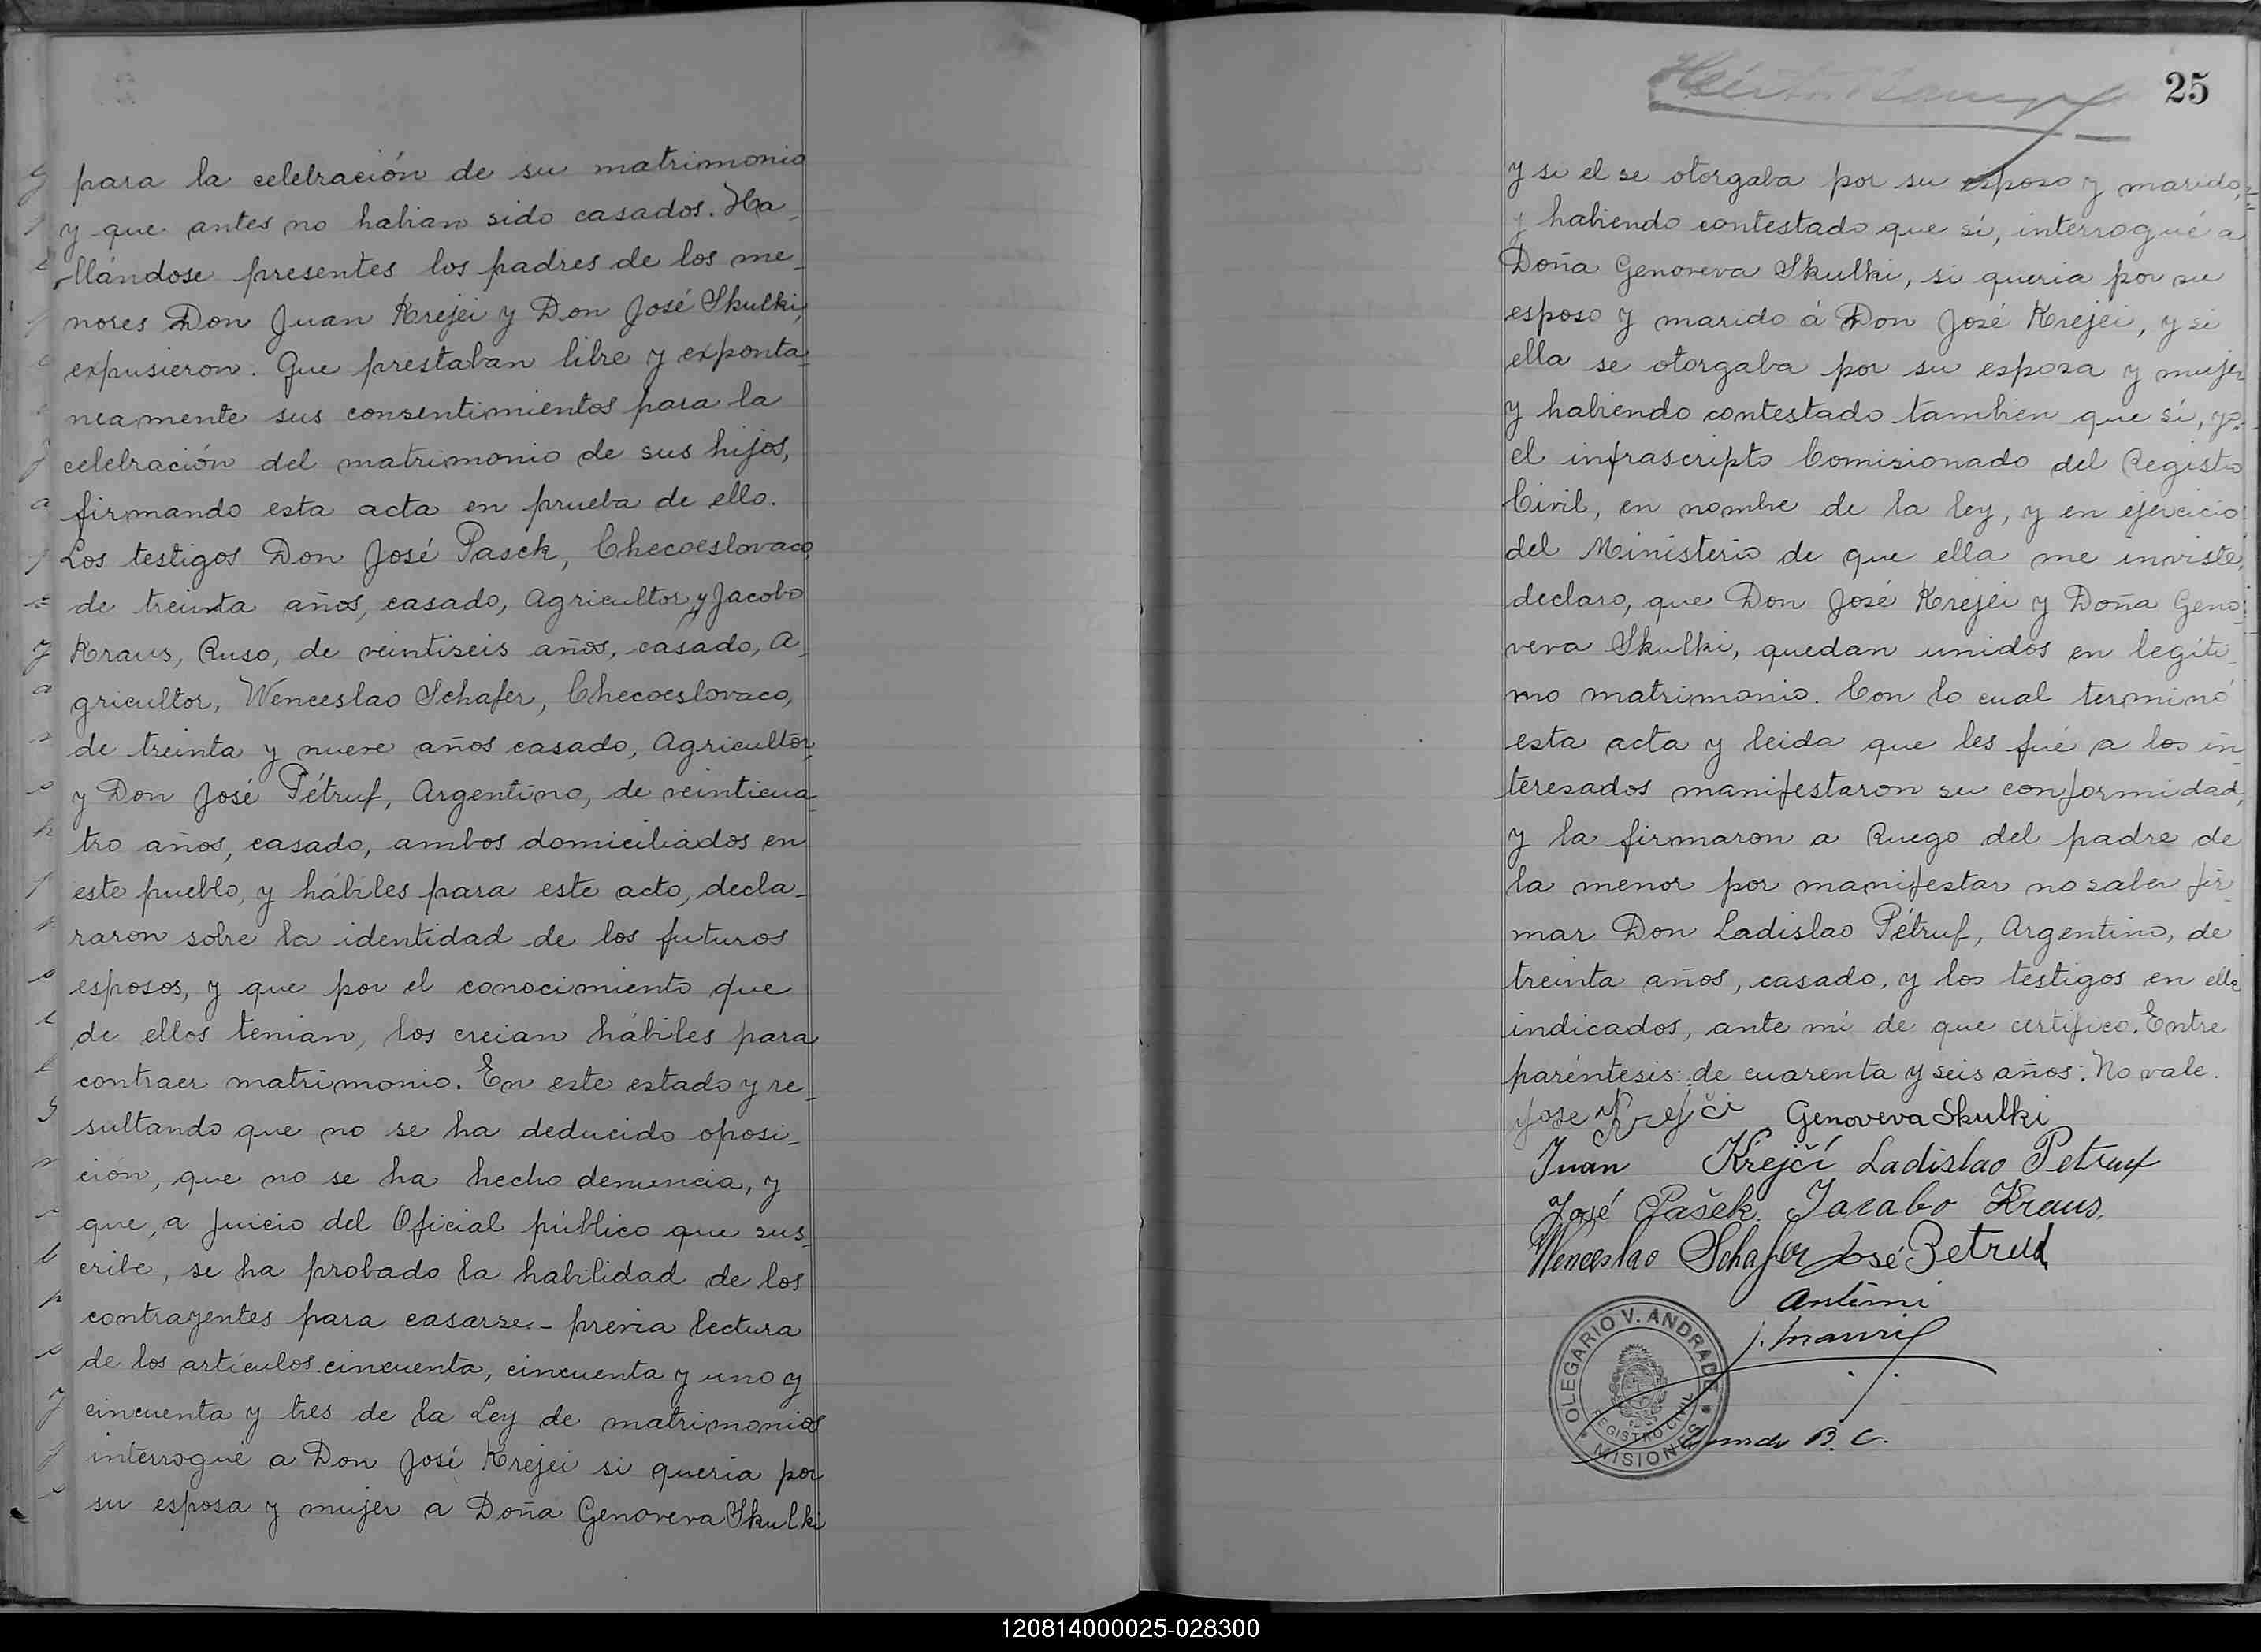 para la celebración de su matrimonio
y que antes no habian sido casados. Ha-
llándose presentes los padres de los me-
nores Don Juan Krejci y Don José Skulki,
expusieron. Que prestaban libre y exponta-
neamente sus consentimientos para la
celebración del matrimonio de sus hijos,
firmando esta acta en prueba de ello.
Los testigos Don José Pasek, Checoeslovaco,
de treinta años, casado, Agricultor, y Jacobo
Kraus, Ruso, de veintiseis años, casado, A-
gricultor, Wenceslao Schafer, Checoeslovaco,
de treinta y nueve años casado, Agricultor,
y Don José Pétruf, Argentino, de veinticua-
tro años, casado, ambos domiciliados en
este pueblo, y hábiles para este acto, decla-
raron sobre la identidad de los futuros
esposos, y que por el conocimiento que
de ellos tenian, los creian hábiles para
contraer matrimonio. En este estado y re-
sultando que no se ha deducido oposi-
ción, que no se ha hecho denuncia, y
que, a juicio del Oficial público que sus-
cribe, se ha probado la habilidad de los
contrayentes para casarse - previa lectura
de los artículos cincuenta, cincuenta y uno y
cincuenta y tres de la Ley de matrimonios
interrogué a Don José Krejci si queria por
su esposa y mujer a Doña Genoveva Skulki
25
y si el se otorgaba por su esposo y marido,
y habiendo contestado que sí, interrogué a
Doña Genoveva Skulki, si queria por su
esposo y marido á Don José Krejci, y si
ella se otorgaba por su esposa y mujer
y habiendo contestado tambien que sí, yo
el infrascripto Comisionado del Registro
Civil, en nombre de la ley, y en ejercicio
del Ministerio de que ella me inviste,
declaro, que Don José Krejci y Doña Geno-
veva Skulki, quedan unidos en legíti-
mo matrimonio. Con lo cual terminó
esta acta y leida que les fué a los in-
teresados manifestaron su conformidad,
y la firmaron a Ruego del padre de
la menor por manifestar no saber fir-
mar Don Ladislao Pétruf, Argentino, de
treinta años, casado, y los testigos en ella
indicados, ante mí de que certifico. Entre
paréntesis: de cuarenta y seis años: No vale.
Jose Krejči Genoveva Skulki
Juan Krejčí Ladislao Petruf
José Pašek. Jacabo Kraus.
Wenceslao Schafer José Petruf
Antemi
OLEGARIO V. ANDRADE
REGISTRO CIVIL
MISIONES
120814000025-028300